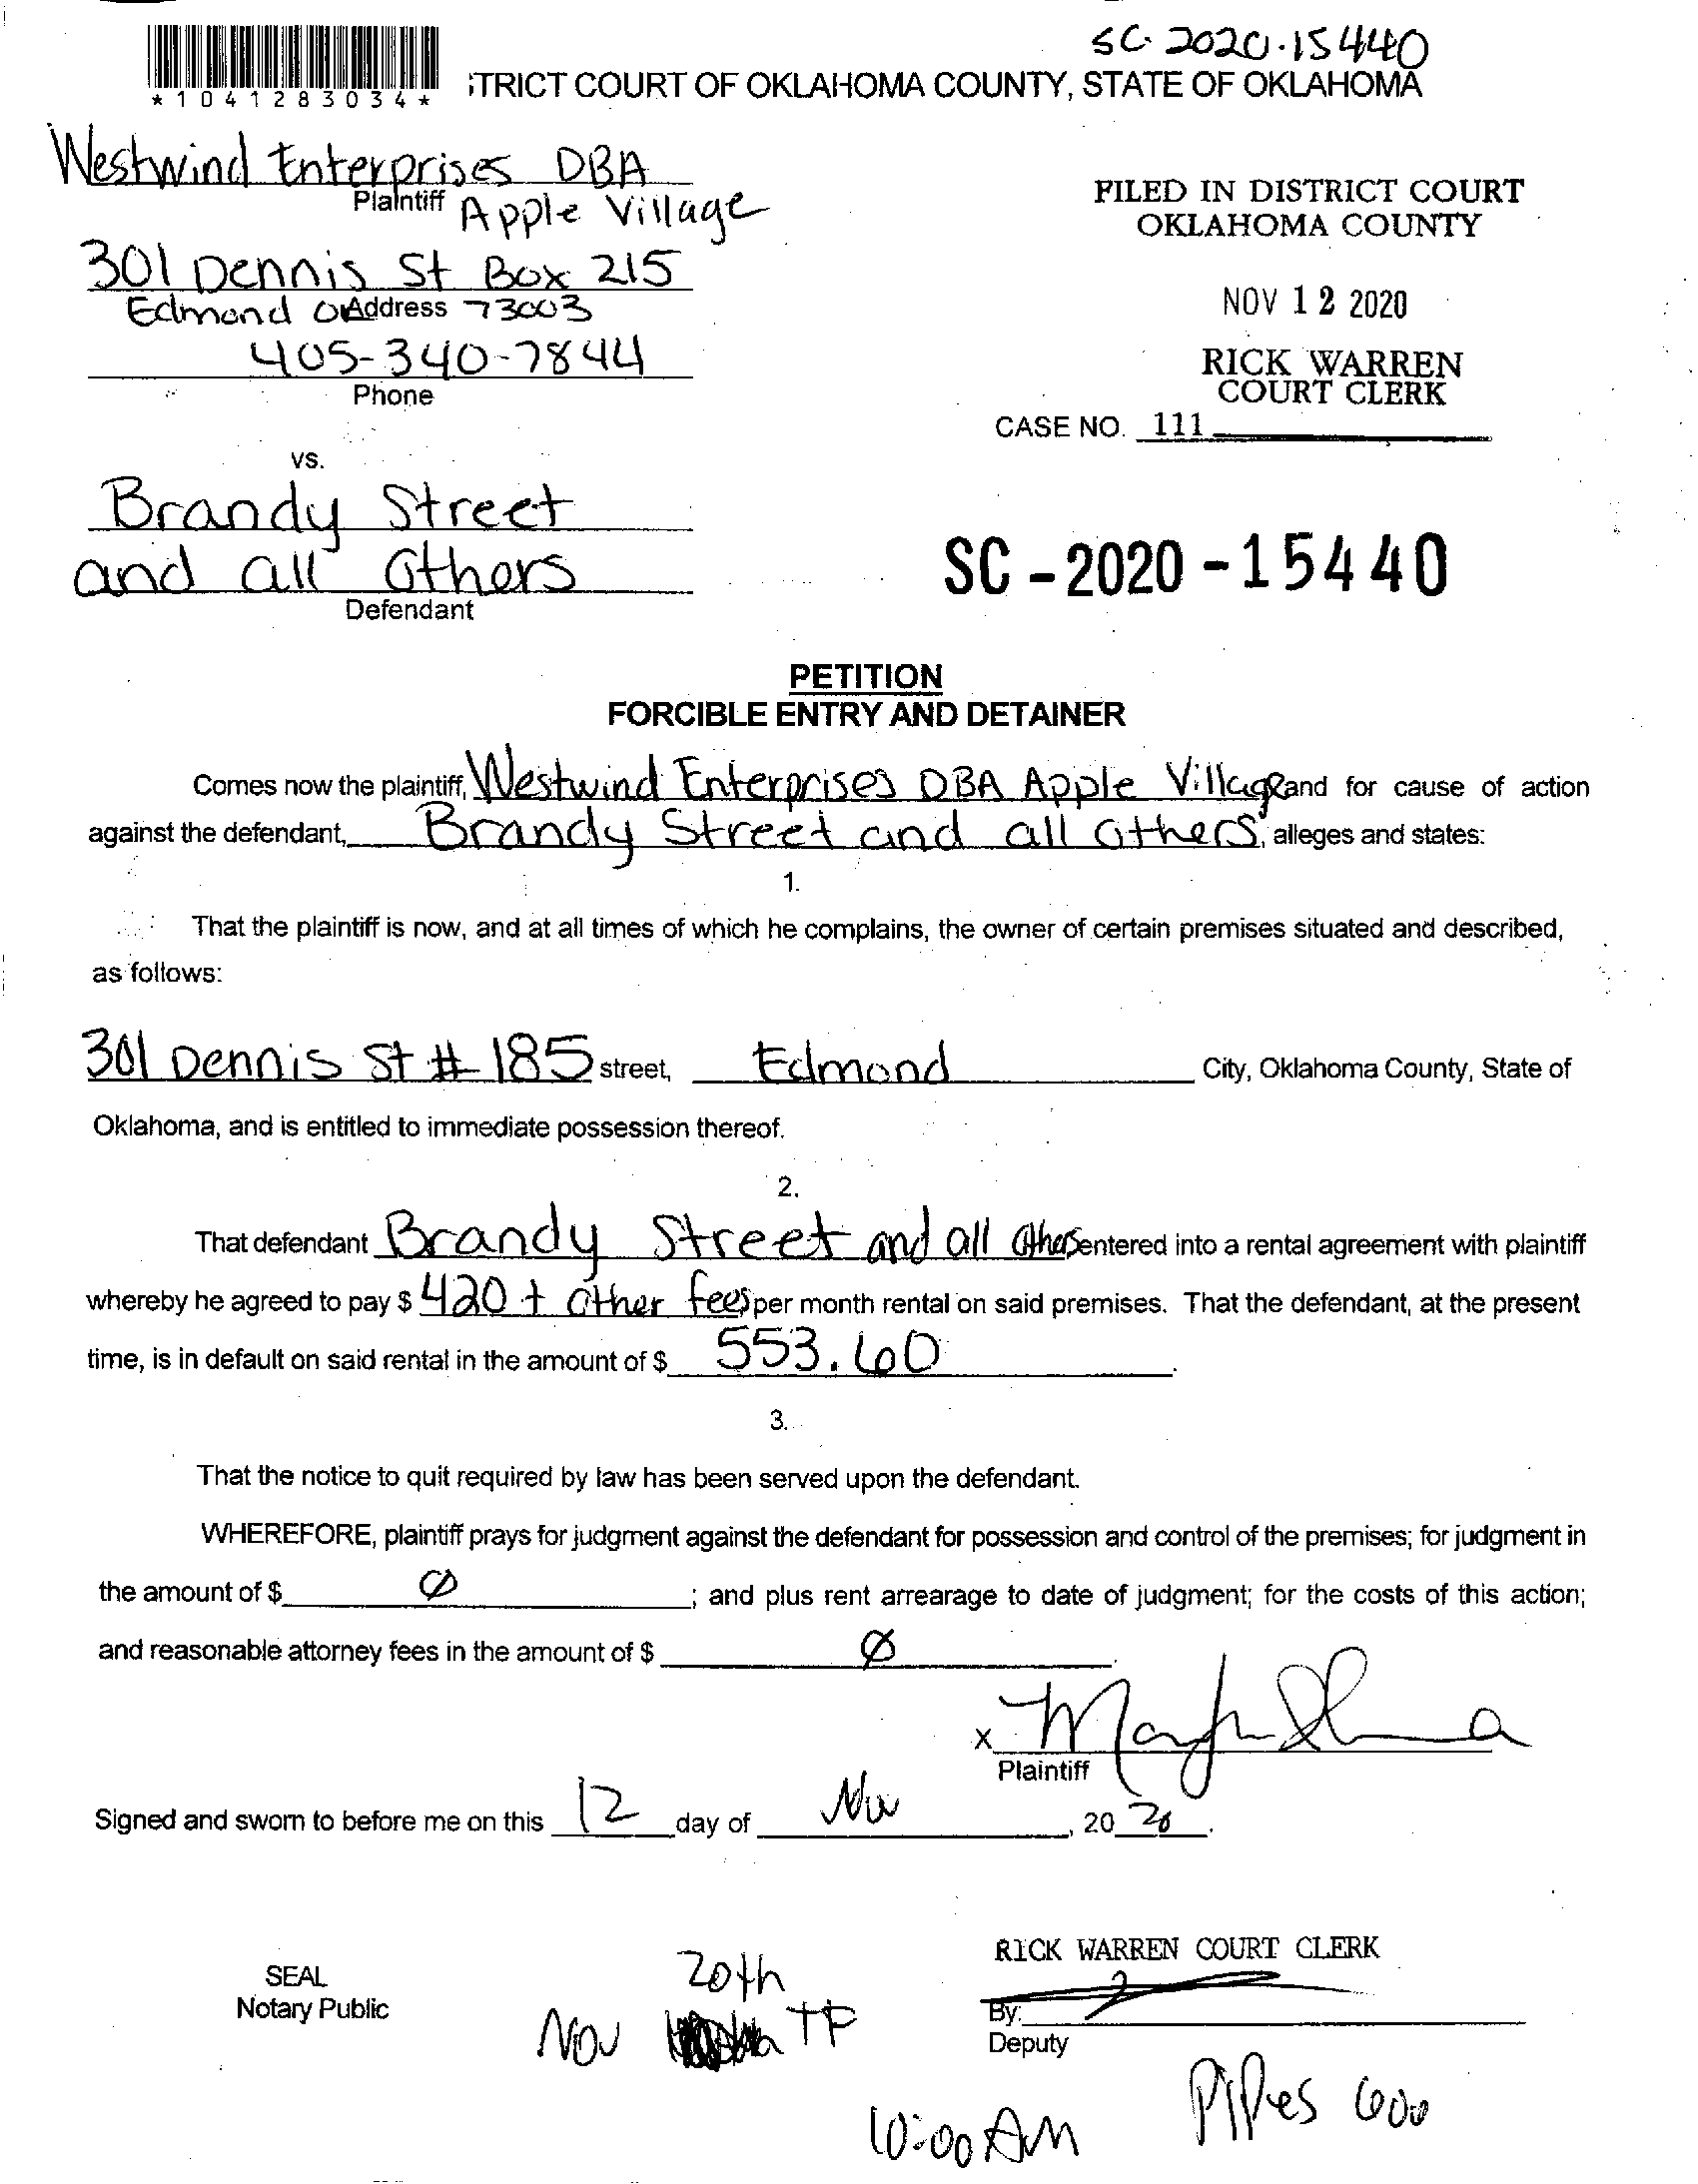 SC-2020-15440
*1041283034*
TRICT COURT OF OKLAHOMA COUNTY, STATE OF OKLAHOMA
Westwind Enterprises DBA
Plaintiff Apple Village
301 Dennis St Box 215
Edmond Address 73003
405-340-7844
Phone
FILED IN DISTRICT COURT
OKLAHOMA COUNTY
NOV 12 2020
RICK WARREN
COURT CLERK
CASE NO. 111
vs.
Brandy Street
and all others
Defendant
SC-2020-15440
PETITION
FORCIBLE ENTRY AND DETAINER
Comes now the plaintiff, Westwind Enterprises DBA Apple Village and for cause of action
against the defendant, Brandy Street and all others, alleges and states:
1.
That the plaintiff is now, and at all times of which he complains, the owner of certain premises situated and described,
as follows:
301 Dennis St # 185 street, Edmond City, Oklahoma County, State of
Oklahoma, and is entitled to immediate possession thereof.
2.
That defendant Brandy Street and all others entered into a rental agreement with plaintiff
whereby he agreed to pay $ 420 + other fees per month rental on said premises. That the defendant, at the present
time, is in default on said rental in the amount of $ 553.60.
3.
That the notice to quit required by law has been served upon the defendant.
WHEREFORE, plaintiff prays for judgment against the defendant for possession and control of the premises; for judgment in
the amount of $ Ø ; and plus rent arrearage to date of judgment; for the costs of this action;
and reasonable attorney fees in the amount of $ Ø.
X
Plaintiff
Signed and sworn to before me on this 12 day of Nov, 20 20.
SEAL
Notary Public
20th
Nov TF
10:00 AM
RICK WARREN COURT CLERK
By:
Deputy
Pipes 600